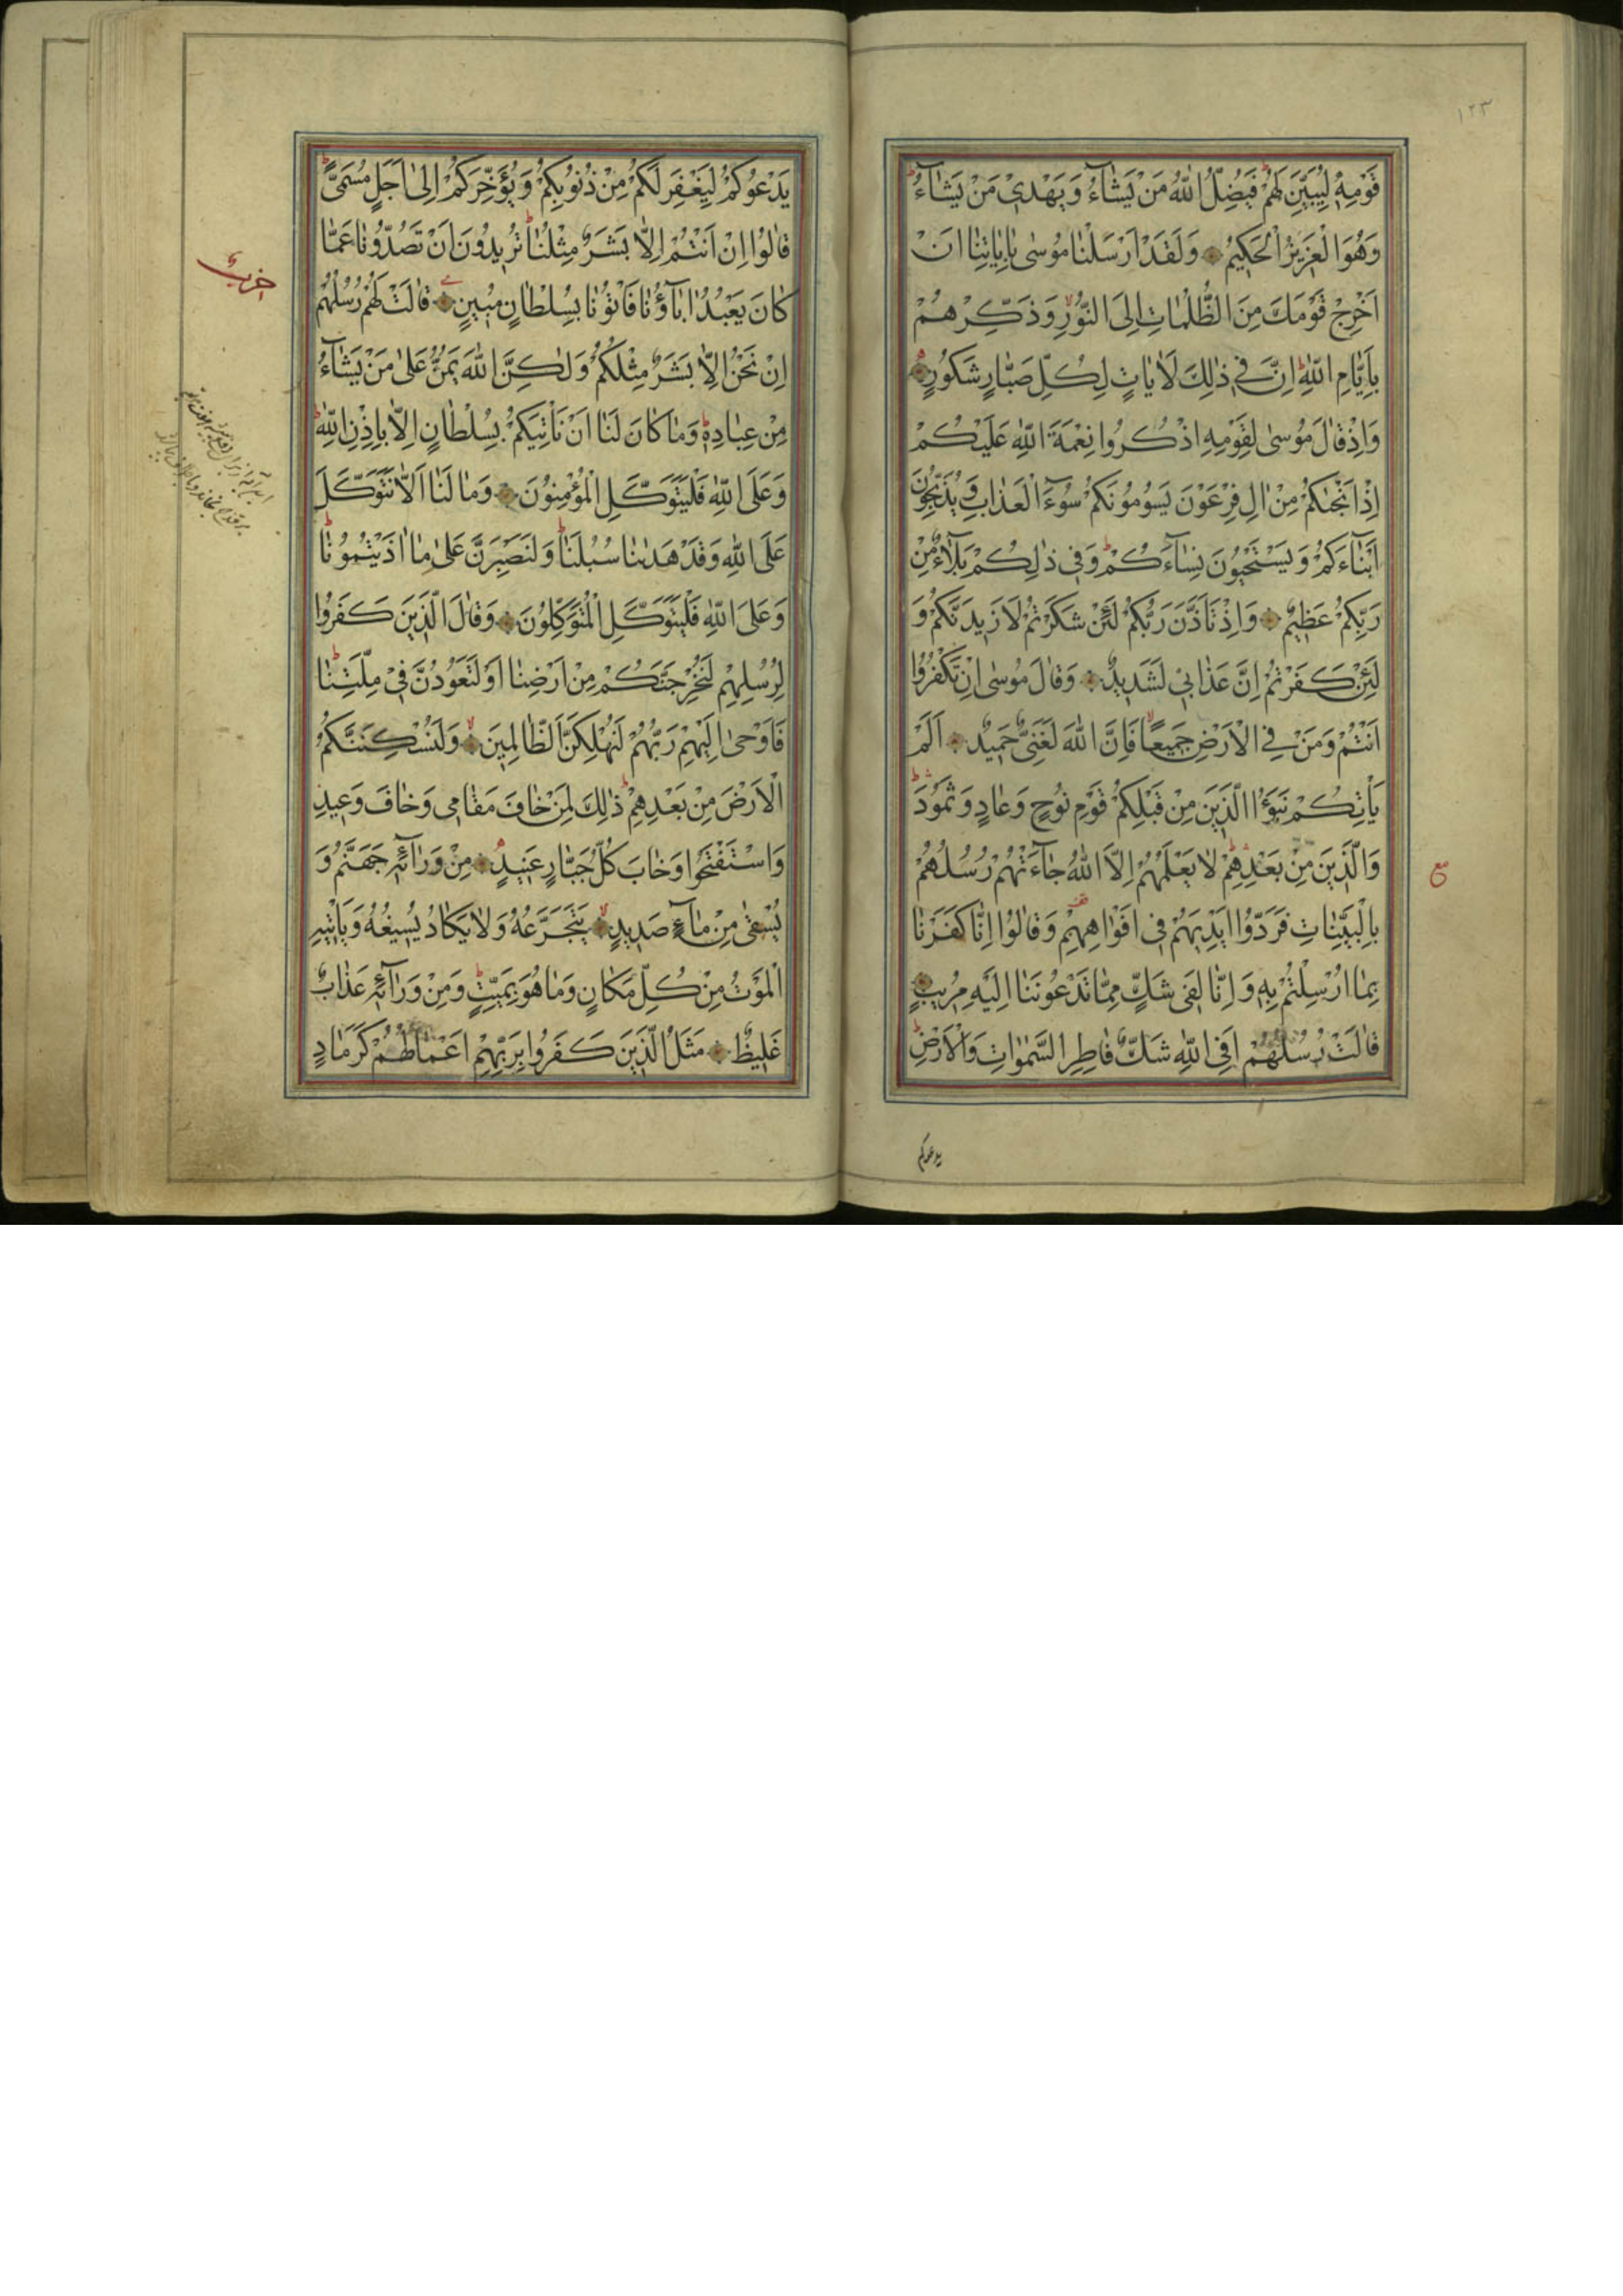 ١٢٣
قَوْمِهٖ لِيُبَيِّنَ لَهُمْ فَيُضِلُّ اللّٰهُ مَنْ يَشٰٓاءُ وَيَهْدٖي مَنْ يَشٰٓاءُ
وَهُوَ الْعَزٖيزُ الْحَكٖيمُ وَلَقَدْ اَرْسَلْنٰا مُوسٰى بِاٰيٰاتِنٰا اَنْ
اَخْرِجْ قَوْمَكَ مِنَ الظُّلُمٰاتِ اِلَى النُّورِ وَذَكِّرْهُمْ
بِاَيّٰامِ اللّٰهِ اِنَّ فٖي ذٰلِكَ لَاٰيٰاتٍ لِكُلِّ صَبّٰارٍ شَكُورٍ
وَاِذْ قٰالَ مُوسٰى لِقَوْمِهِ اذْكُرُوا نِعْمَةَ اللّٰهِ عَلَيْكُمْ
اِذْ اَنْجٰكُمْ مِنْ اٰلِ فِرْعَوْنَ يَسُومُونَكُمْ سُوٓءَ الْعَذٰابِ وَيُذَبِّحُونَ
اَبْنٰٓاءَكُمْ وَيَسْتَحْيُونَ نِسٰٓاءَكُمْ وَفٖي ذٰلِكُمْ بَلٰٓاءٌ مِنْ
رَبِّكُمْ عَظٖيمٌ وَاِذْ تَاَذَّنَ رَبُّكُمْ لَئِنْ شَكَرْتُمْ لَاَزٖيدَنَّكُمْ وَ
لَئِنْ كَفَرْتُمْ اِنَّ عَذٰابٖي لَشَدٖيدٌ وَقٰالَ مُوسٰى اِنْ تَكْفُرُوا
اَنْتُمْ وَمَنْ فِي الْاَرْضِ جَمٖيعًا فَاِنَّ اللّٰهَ لَغَنِيٌّ حَمٖيدٌ اَلَمْ
يَاْتِكُمْ نَبَؤُا الَّذٖينَ مِنْ قَبْلِكُمْ قَوْمِ نُوحٍ وَعٰادٍ وَثَمُودَ
وَالَّذٖينَ مِنْ بَعْدِهِمْ لٰا يَعْلَمُهُمْ اِلَّا اللّٰهُ جٰٓاءَتْهُمْ رُسُلُهُمْ
بِالْبَيِّنٰاتِ فَرَدُّوا اَيْدِيَهُمْ فٖي اَفْوٰاهِهِمْ وَقٰالُوا اِنّٰا كَفَرْنٰا
بِمٰا اُرْسِلْتُمْ بِهٖ وَاِنّٰا لَفٖي شَكٍّ مِمّٰا تَدْعُونَنٰا اِلَيْهِ مُرٖيبٍ
قٰالَتْ رُسُلُهُمْ اَفِي اللّٰهِ شَكٌّ فٰاطِرِ السَّمٰوٰاتِ وَالْاَرْضِ
ع
يدعوكم
يَدْعُوكُمْ لِيَغْفِرَ لَكُمْ مِنْ ذُنُوبِكُمْ وَيُؤَخِّرَكُمْ اِلٰى اَجَلٍ مُسَمًّى
قٰالُوا اِنْ اَنْتُمْ اِلّٰا بَشَرٌ مِثْلُنٰا تُرٖيدُونَ اَنْ تَصُدُّونٰا عَمّٰا
كٰانَ يَعْبُدُ اٰبٰٓاؤُنٰا فَاْتُونٰا بِسُلْطٰانٍ مُبٖينٍ قٰالَتْ لَهُمْ رُسُلُهُمْ
اِنْ نَحْنُ اِلّٰا بَشَرٌ مِثْلُكُمْ وَلٰكِنَّ اللّٰهَ يَمُنُّ عَلٰى مَنْ يَشٰٓاءُ
مِنْ عِبٰادِهٖ وَمٰا كٰانَ لَنٰا اَنْ نَاْتِيَكُمْ بِسُلْطٰانٍ اِلّٰا بِاِذْنِ اللّٰهِ
وَعَلَى اللّٰهِ فَلْيَتَوَكَّلِ الْمُؤْمِنُونَ وَمٰا لَنٰا اَلّٰا نَتَوَكَّلَ
عَلَى اللّٰهِ وَقَدْ هَدٰىنٰا سُبُلَنٰا وَلَنَصْبِرَنَّ عَلٰى مٰا اٰذَيْتُمُونٰا
وَعَلَى اللّٰهِ فَلْيَتَوَكَّلِ الْمُتَوَكِّلُونَ وَقٰالَ الَّذٖينَ كَفَرُوا
لِرُسُلِهِمْ لَنُخْرِجَنَّكُمْ مِنْ اَرْضِنٰا اَوْ لَتَعُودُنَّ فٖي مِلَّتِنٰا
فَاَوْحٰى اِلَيْهِمْ رَبُّهُمْ لَنُهْلِكَنَّ الظّٰالِمٖينَ وَلَنُسْكِنَنَّكُمُ
الْاَرْضَ مِنْ بَعْدِهِمْ ذٰلِكَ لِمَنْ خٰافَ مَقٰامٖي وَخٰافَ وَعٖيدِ
وَاسْتَفْتَحُوا وَخٰابَ كُلُّ جَبّٰارٍ عَنٖيدٍ مِنْ وَرٰٓائِهٖ جَهَنَّمُ وَ
يُسْقٰى مِنْ مٰٓاءٍ صَدٖيدٍ يَتَجَرَّعُهُ وَلٰا يَكٰادُ يُسٖيغُهُ وَيَاْتٖيهِ
الْمَوْتُ مِنْ كُلِّ مَكٰانٍ وَمٰا هُوَ بِمَيِّتٍ وَمِنْ وَرٰٓائِهٖ عَذٰابٌ
غَلٖيظٌ مَثَلُ الَّذٖينَ كَفَرُوا بِرَبِّهِمْ اَعْمٰالُهُمْ كَرَمٰادٍ